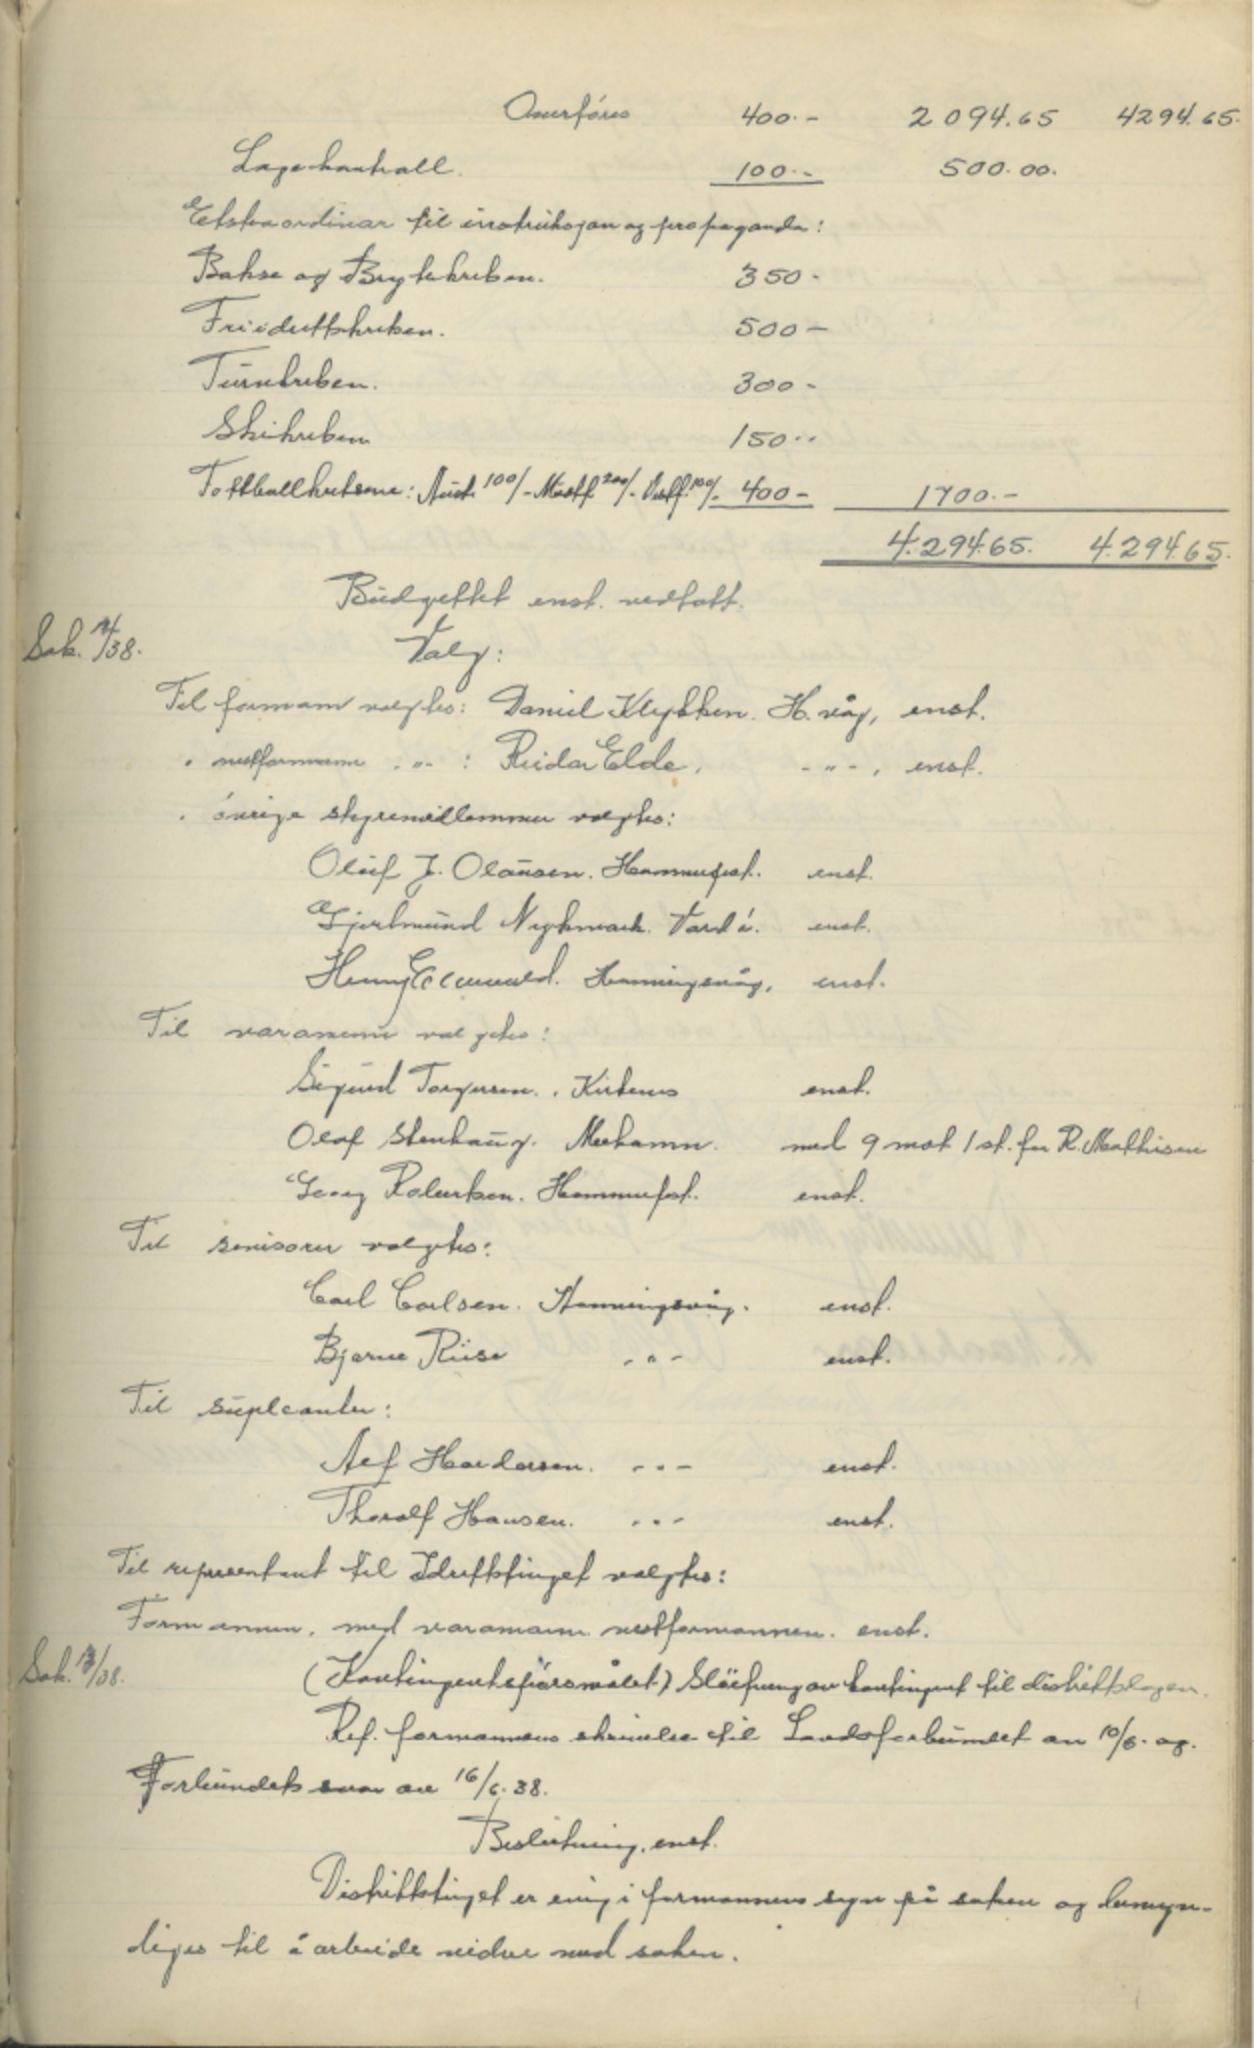 Overføres 400.- 2 094.65 4294.65.
Legekontroll. 100.- 500.00.
Ekstraordinær til instruksjon og propaganda:
Bokse og Brytekretsen. 350.-
Friidrettskretsen. 500 —
Turnkretsen. 300 -
Skikretsen 150..
Fotballkretsene: Austf. 100/- Mostf. 200/- Vestf. 100/- 400 - 1700.-
4.294.65. 4.294.65.
Budgettet enst. vedtatt.
Sak. /38. Valg:
Til formann valgtes: Daniel Klykken. H.våg, enst.
" nestformann -"- : Reidar Elde, -"-, enst.
" øvrige styremedlemmer valgtes:
Oluf J. Olausen. Hammerfest. enst.
Gjertmund Nykmark. Vardø. enst.
Henry Honningsvåg, enst.
Til varamenn valgtes:
Sigurd Torgersen. Kirkenes enst.
Olaf Stenhaug. Mehamn. med 9 mot 1 st. for R. Mathisen
Georg Robertsen. Hammerfest. enst.
Til revisorer valgtes:
Carl Carlsen. Honningsvåg. enst.
Bjarne Riise -"- enst.
Til supleanter:
Alf Haldorsen. -"- enst.
Thoralf Hansen. -"- enst.
Til representant til Idrettstinget valgtes:
Formannen, med varamann nestformannen. enst.
Sak. /38. (Kontingentspørsmålet) Sløifning av kontingent til distriktslagen.
Ref. formannens skrivelse til Landsforbundet av 10/6. og
Forbundets svar av 16/6.38.
Beslutning, enst.
Distriktstinget er enig i formannens syn på saken og bemyn-
diges til å arbeide videre med saken.